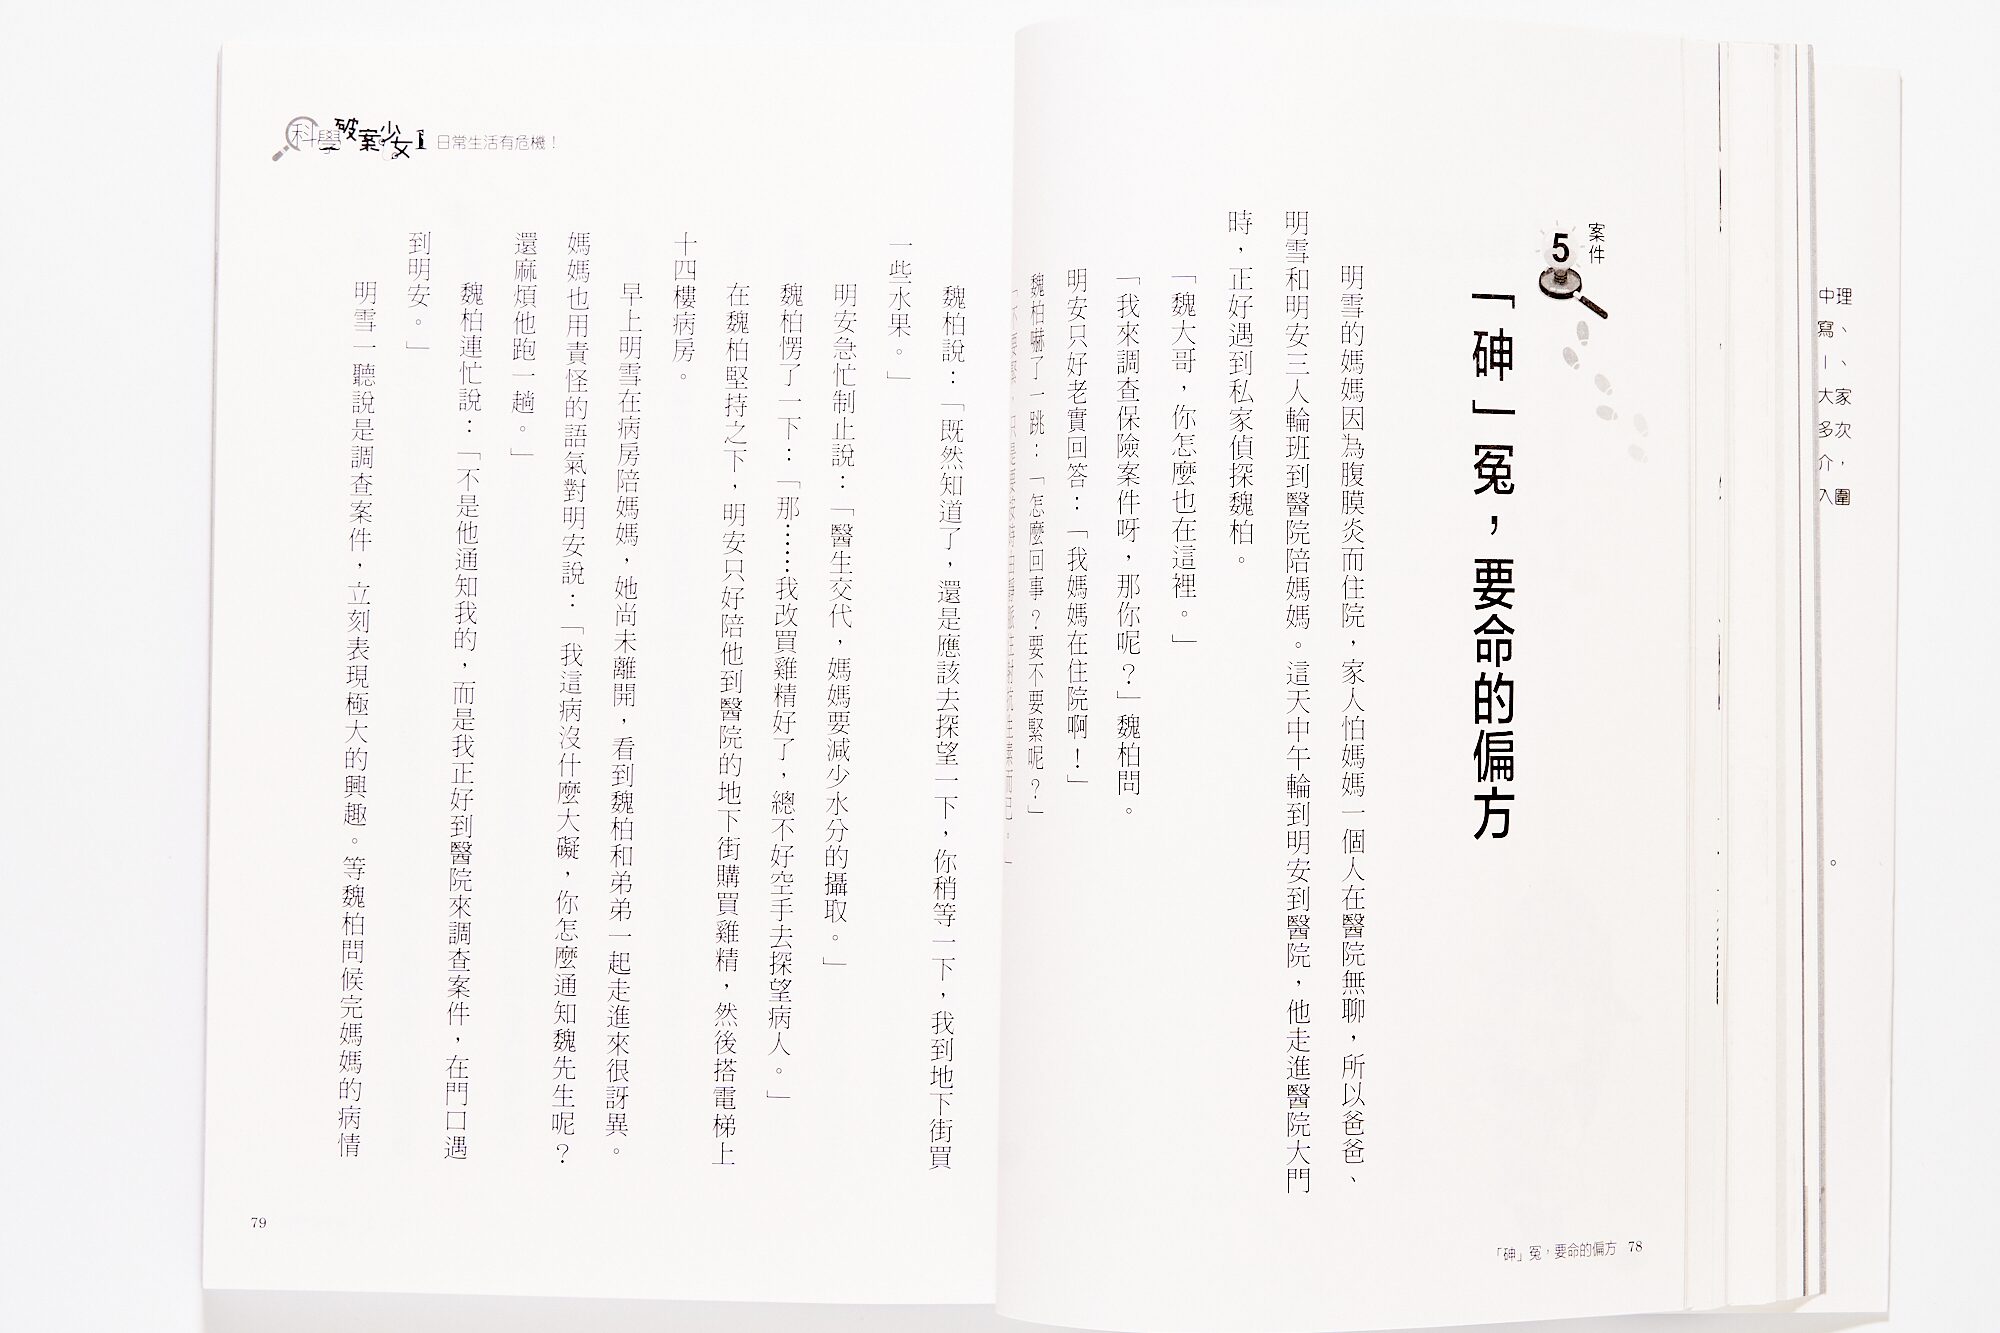 案件
5
「砷」冤，要命的偏方
明雪的媽媽因為腹膜炎而住院，家人怕媽媽一個人在醫院無聊，所以爸爸、
明雪和明安三人輪班到醫院陪媽媽。這天中午輪到明安到醫院，他走進醫院大門
時，正好遇到私家偵探魏柏。
「魏大哥，你怎麼也在這裡。」
「我來調查保險案件呀，那你呢？」魏柏問。
明安只好老實回答：「我媽媽在住院啊！」
魏柏嚇了一跳：「怎麼回事？要不要緊呢？」
「砷」冤，要命的偏方 78
科學破案少女1 日常生活有危機！
魏柏說：「既然知道了，還是應該去探望一下，你稍等一下，我到地下街買
一些水果。」
明安急忙制止說：「醫生交代，媽媽要減少水分的攝取。」
魏柏愣了一下：「那……我改買雞精好了，總不好空手去探望病人。」
在魏柏堅持之下，明安只好陪他到醫院的地下街購買雞精，然後搭電梯上
十四樓病房。
早上明雪在病房陪媽媽，她尚未離開，看到魏柏和弟弟一起走進來很訝異。
媽媽也用責怪的語氣對明安說：「我這病沒什麼大礙，你怎麼通知魏先生呢？
還麻煩他跑一趟。」
魏柏連忙說：「不是他通知我的，而是我正好到醫院來調查案件，在門口遇
到明安。」
明雪一聽說是調查案件，立刻表現極大的興趣。等魏柏問候完媽媽的病情
79